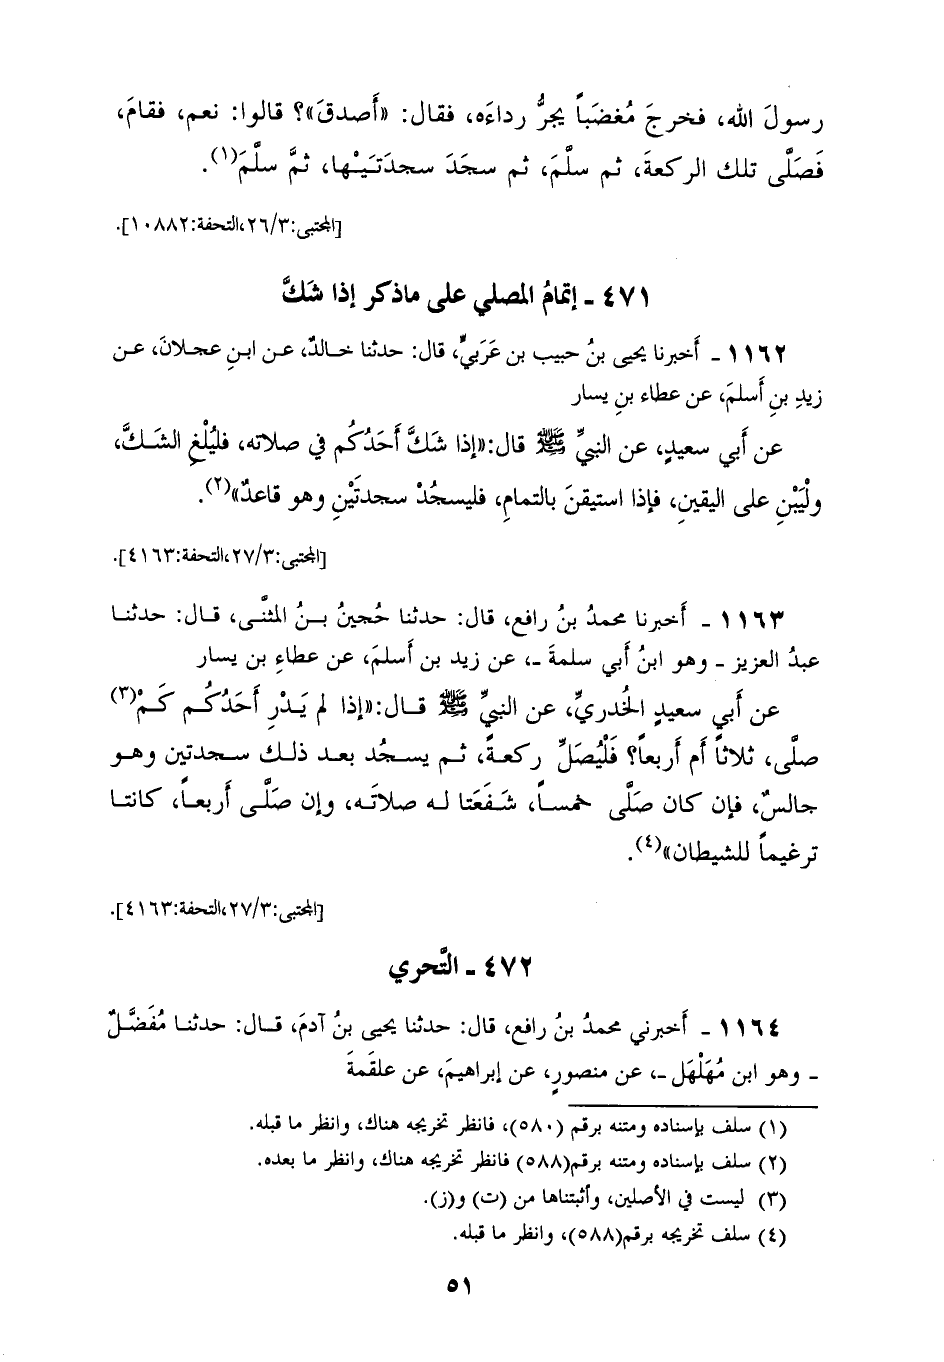 رسولَ الله، فخرجَ مُغضَباً يجرُّ رداءَه، فقال: «أَصدقَ»؟ قالوا: نعم، فقامَ،
فَصَلَّى تلك الركعةَ، ثم سلَّمَ، ثم سجَدَ سجدَتَيْها، ثمَّ سلَّمَ(١).
[المجتبى:٢٦/٣،التحفة:١٠٨٨٢].
٤٧١ ـ إتمامُ المصلي على ماذكر إذا شَكَّ
١١٦٢ ـ أخبرنا يحيى بنُ حبيب بن عَرَبيٍّ، قال: حدثنا خالدٌ، عن ابنِ عجلانَ، عن
زيدِ بنِ أسلمَ، عن عطاء بنِ يسار
عن أبي سعيدٍ، عن النبيِّ ﷺ قال:«إذا شكَّ أَحَدُكُم في صلاته، فليُلْغِ الشكَّ،
ولْيَبْنِ على اليقينِ، فإذا استيقنَ بالتمامِ، فليسجُدْ سجدتَيْنِ وهو قاعدٌ»(٢).
[المجتبى:٢٧/٣،التحفة:٤١٦٣].
١١٦٣ ـ أخبرنا محمدُ بنُ رافع، قال: حدثنا حُجينُ بنُ المثنَّى، قال: حدثنا
عبدُ العزيز ـ وهو ابنُ أبي سلمةَ ـ، عن زيد بن أسلمَ، عن عطاءِ بن يسار
عن أبي سعيدٍ الخُدريِّ، عن النبيِّ ﷺ قال:«إذا لم يَدْرِ أَحَدُكُم كَمْ(٣)
صلَّى، ثلاثاً أم أربعاً؟ فَلْيُصَلِّ ركعةً، ثم يسجُد بعد ذلك سجدتين وهو
جالسٌ، فإن كان صَلَّى خمساً، شفَعَتا له صلاتَه، وإن صَلَّى أربعاً، كانتا
ترغيماً للشيطان»(٤).
[المجتبى:٢٧/٣،التحفة:٤١٦٣].
٤٧٢ ـ التَّحري
١١٦٤ ـ أخبرني محمدُ بنُ رافع، قال: حدثنا يحيى بنُ آدمَ، قال: حدثنا مُفَضَّلٌ
ـ وهو ابن مُهَلْهَل ـ، عن منصورٍ، عن إبراهيمَ، عن علقَمةَ
(١) سلف بإسناده ومتنه برقم (٥٨٠)، فانظر تخريجه هناك، وانظر ما قبله.
(٢) سلف بإسناده ومتنه برقم(٥٨٨) فانظر تخريجه هناك، وانظر ما بعده.
(٣) ليست في الأصلين، وأثبتناها من (ت) و(ز).
(٤) سلف تخريجه برقم(٥٨٨)، وانظر ما قبله.
٥١